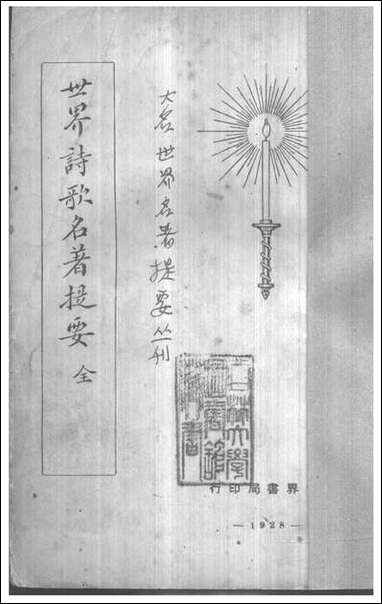 世界詩歌名著提要 全
大名 世界名著提要丛刊
界書局印行
— 1928 —